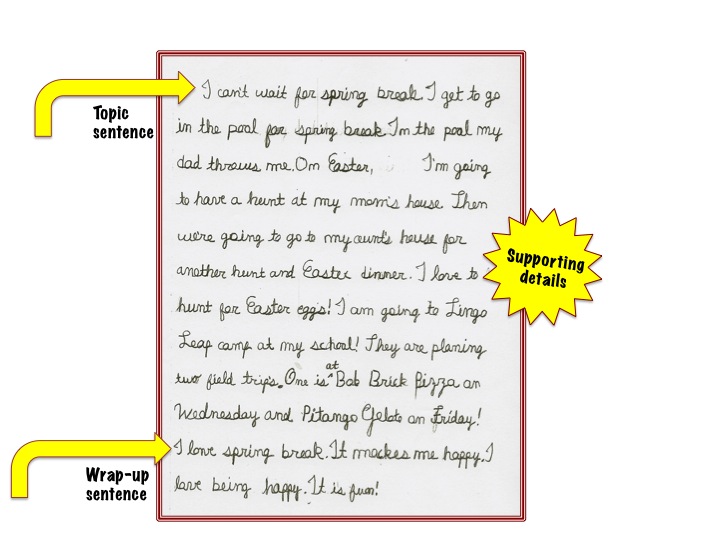 I can't wait for spring break. I get to go
Topic
sentence
in the pool for spring break. In the pool my
dad throws me. On Easter, I'm going
to have a hunt at my mom's house. Then
we're going to go to my aunt's house for
another hunt and Easter dinner. I love to
Supporting
details
hunt for Easter eggs! I am going to Lingo
Leap camp at my school! They are planing
two field trips. One is at Bob Brick Pizza on
Wednesday and Pitango Gelato on Friday!
I love spring break. It mackes me happy. I
Wrap-up
sentence
love being happy. It is fun!